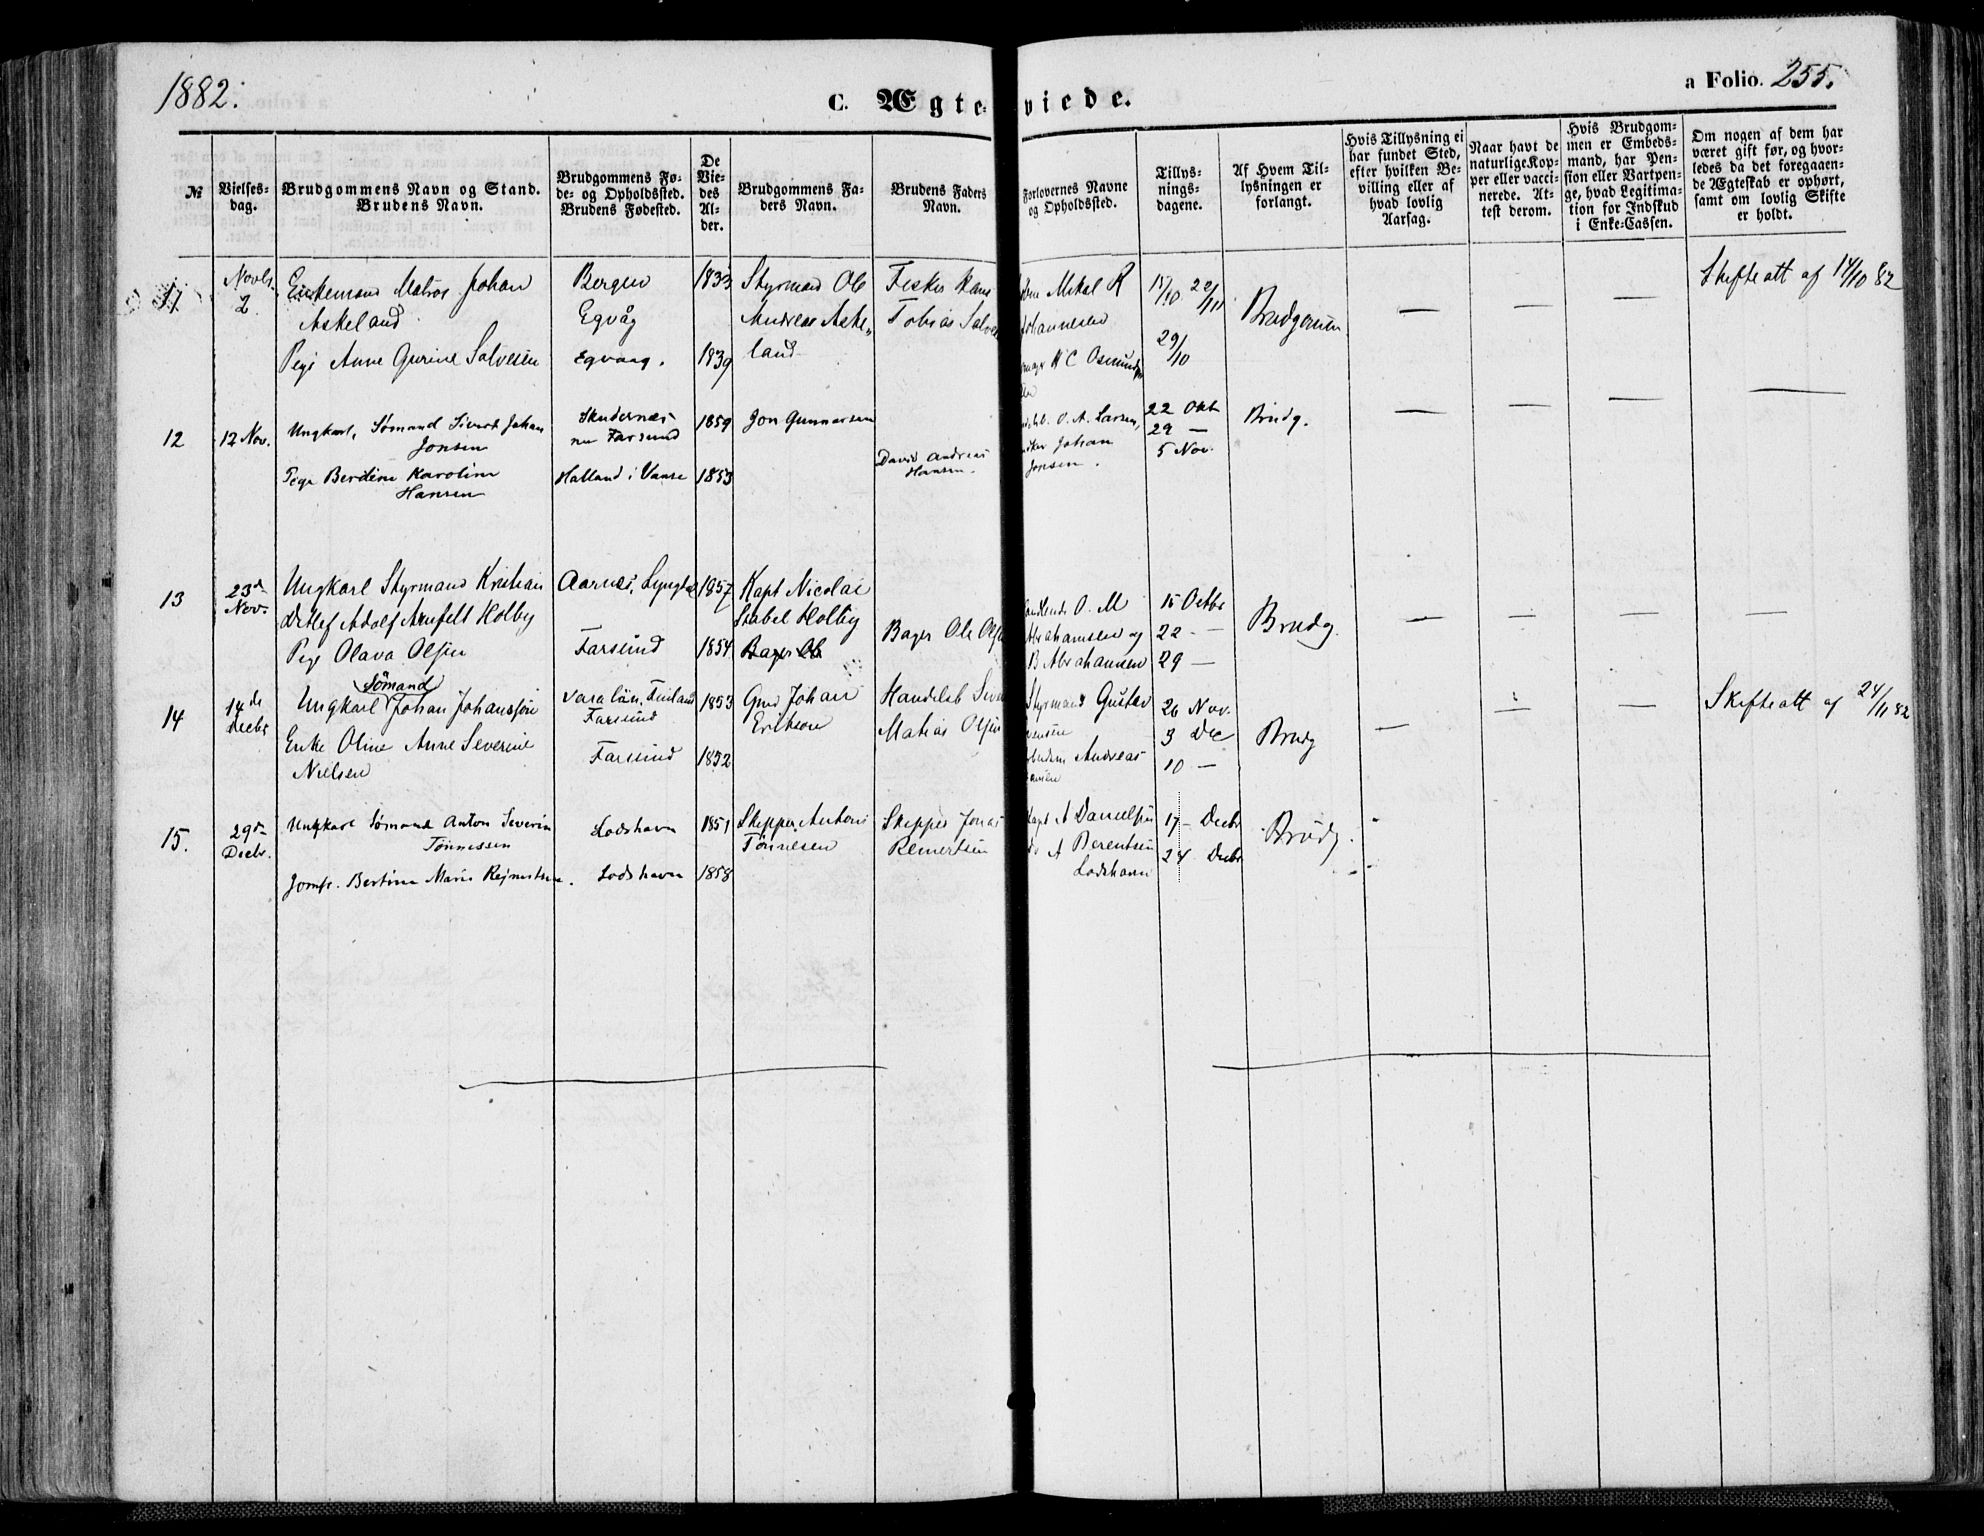 1882.
C. Ægteviede.
a Folio. 255.
№
Vielses-
dag.
Brudgommens Navn og Stand.
Brudens Navn.
Brudgommens Fø-
de- og Opholdssted.
Brudens Fødested.
De
Vie-
des
Al-
der.
Brudgommens Fa-
ders Navn.
Brudens Faders
Navn.
Forlovernes Navne
og Opholdssted.
Tillys-
nings-
dagene.
Af Hvem Til-
lysningen er
forlangt.
Hvis Tillysning ei
har fundet Sted,
efter hvilken Be-
villing eller af
hvad lovlig
Aarsag.
Naar havt de
naturlige Kop-
per eller vacci-
nerede. At-
test derom.
Hvis Brudgom-
men er Embeds-
mand, har Pen-
sion eller Vartpen-
ge, hvad Legitima-
tion for Indskud
i Enke-Cassen.
Om nogen af dem har
været gift før, og hvor-
ledes da det foregaaen-
de Ægteskab er ophørt,
samt om lovlig Skifte
er holdt.
Novbr
2
Enkemand Matros Johan
Askeland
Pege Anne Gurine Salvesen
Bergen
Egvåg
Egvaag.
1833
1839
Styrmand Ole
Andreas Aske-
land
Fisker Hans
Tobias Salves
Mikal R
Johannesen
H C Osmund
15/10 22/10
29/10
Brudgommen
— — —
Skifteatt af 14/10 82
12
12 Nov.
Ungkarl, Sømand Sivert Johan
Jonsen
Pege Berdine Karoline
Hansen
Skudernæs
nu Farsund
Halland i Vanse
1859
1853
Jon Gunnarsen
David Andreas
Hansen.
O. A. Larsen,
Johan
Jonsen.
22 Okt
29 —
5 Nov.
Brudg.
— — — —
13
23de
Nov.
Ungkarl Styrmand Kristian
Detlef Adolf Arnfelt Holby
Pege Olava Olsen
Aarnes, Lyngdal
Farsund
1857
1854
Kapt Nicolai
Stabel Holby
Bager Ole
Bager Ole Olsen
O. M
Abrahamsen og
B Abrahamsen
15 Octbr
22 —
29 —
Brudg.
— — — —
14
14de
Decbr
Sømand
Ungkarl Johan Johanssøn
Enke Oline Anne Severine
Nielsen
Vasa län, Finland
Farsund
Farsund
1853
1852
Gmd Johan
Erikson
Handelsb Siver
Matias Olsen
Styrmand Gustav
Andreas
26 Nov.
3 Dec
10 —
Brudg
— — —
Skifteatt af 24/11 82
15.
29de
Decbr.
Ungkarl Sømand Anton Severin
Tønnessen
Jomfr. Bertine Marie Rejnertsen.
Lodshavn
Lodshavn
1851
1858
Skipper Anton
Tønnesen
Skipper Jonas
Reinertsen
Kapt A Danielsen
A Berentsen
Lodshavn
17 — Decbr
24 Decbr
Brudg.